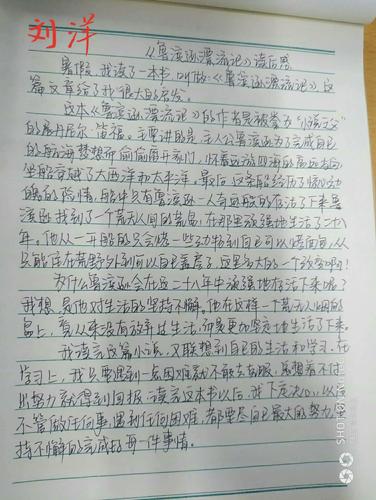 刘洋
《鲁滨逊漂流记》读后感
暑假,我读了一本书,叫做《鲁滨逊漂流记》这
篇文章给了我很大的启发。
这本《鲁滨逊漂流记》的作者是被誉为“小说之父”
的丹尼尔·笛福。主要讲的是:主人公鲁滨逊为了完成自己
的航海梦想而偷偷离开家门,怀着远游四海的高远志向
坐船穿越了大西洋和太平洋。最后,这条船经历了惊心动
魄的险情,船中只有鲁滨逊一人奇迹般的存活了下来鲁
滨逊找到了一个荒无人烟的荒岛,在那里顽强地生活了二十八
年。他从一开始的只会烧一些动物到自己可以烤面包,从
只能住在荒野外到可以自己盖房子,这是多大的一个改变啊!
为什么鲁滨逊会在这二十八年中顽强地存活下来呢?
我想:是他对生活的坚持不懈。他在这样一个荒无人烟的
岛上,有从来没有放弃过生活,而是更加坚定地生活了下来。
我读完这篇小说,又联想到自己的生活和学习,在
学习上,我只要遇到一点困难就不敢去克服,总想着不付
出努力就得到回报,读完这本书以后,我下定决心:以后
不管做任何事,遇到任何困难,都要尽自己最大的努力,坚
持不懈的完成好每一件事情。
SHOT ON